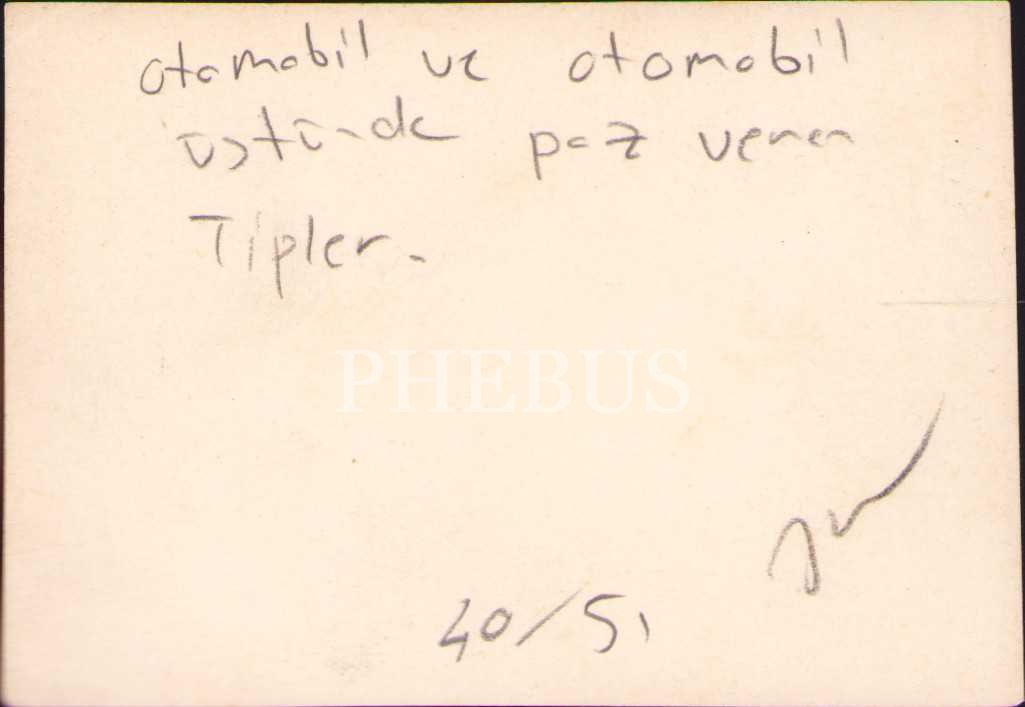 otomobil ve otomobil
üstünde poz veren
Tipler.
PHEBUS
40/51